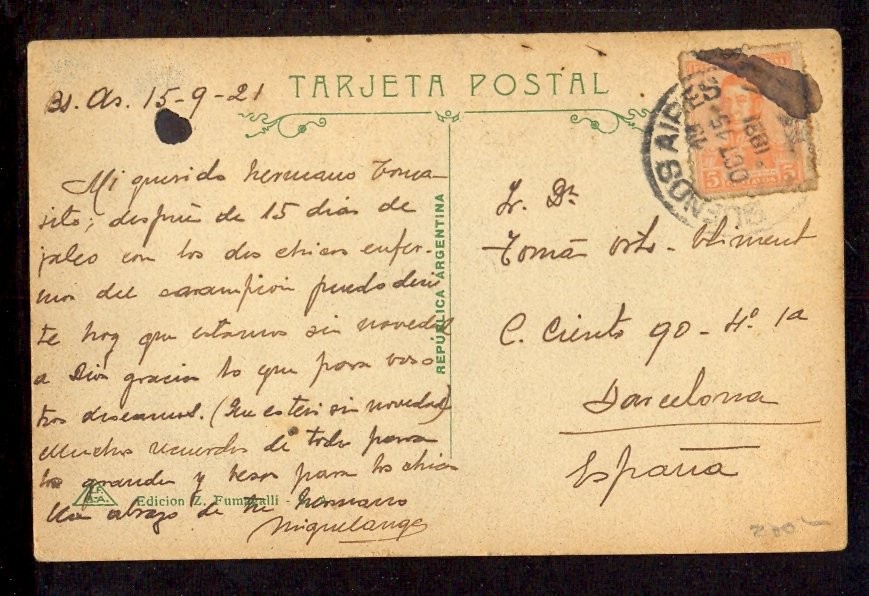 TARJETA POSTAL
Bs. As. 15-9-21
Mi querido hermano Toma-
sito; despues de 15 dias de
jaleo con los dos chicos enfer-
mos del sarampion puedo decir
te hoy que estamos sin novedad
a Dios gracias lo que para voso
tros deseamos. (Que esteis sin novedad)
Muchos recuerdos de todos para
los grandes y besos para los chicos
Un abrazo de tu hermano
Miguelangel
Edicion Z. Fumagalli -
REPÚBLICA ARGENTINA
BUENOS AIRES
OCT 15
5 CENTAVOS 5
Sr. Dn
Tomás Climent
C. Ciento 90 - 4º 1a
Barcelona
España
200